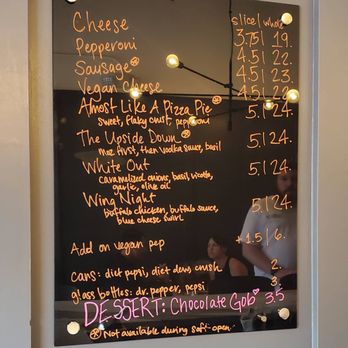 slice | whole
Cheese 3.75 | 19.
Pepperoni 4.5 | 22.
Sausage* 4.5 | 23.
Vegan Cheese 4.5 | 22.
Almost Like A Pizza Pie* 5. | 24.
sweet, flaky crust, pepperoni
The Upside Down* 5. | 24.
moz first, then vodka sauce, basil
White Out 5. | 24.
caramelized onions, basil, ricotta,
garlic, olive oil
Wing Night 5. | 24.
buffalo chicken, buffalo sauce,
blue cheese swirl
Add on vegan pep +1.5 | 6.
cans: diet pepsi, diet dew, crush 2.
glass bottles: dr. pepper, pepsi 3.
DESSERT: Chocolate Gob♡ 3.5
* Not available during soft-open